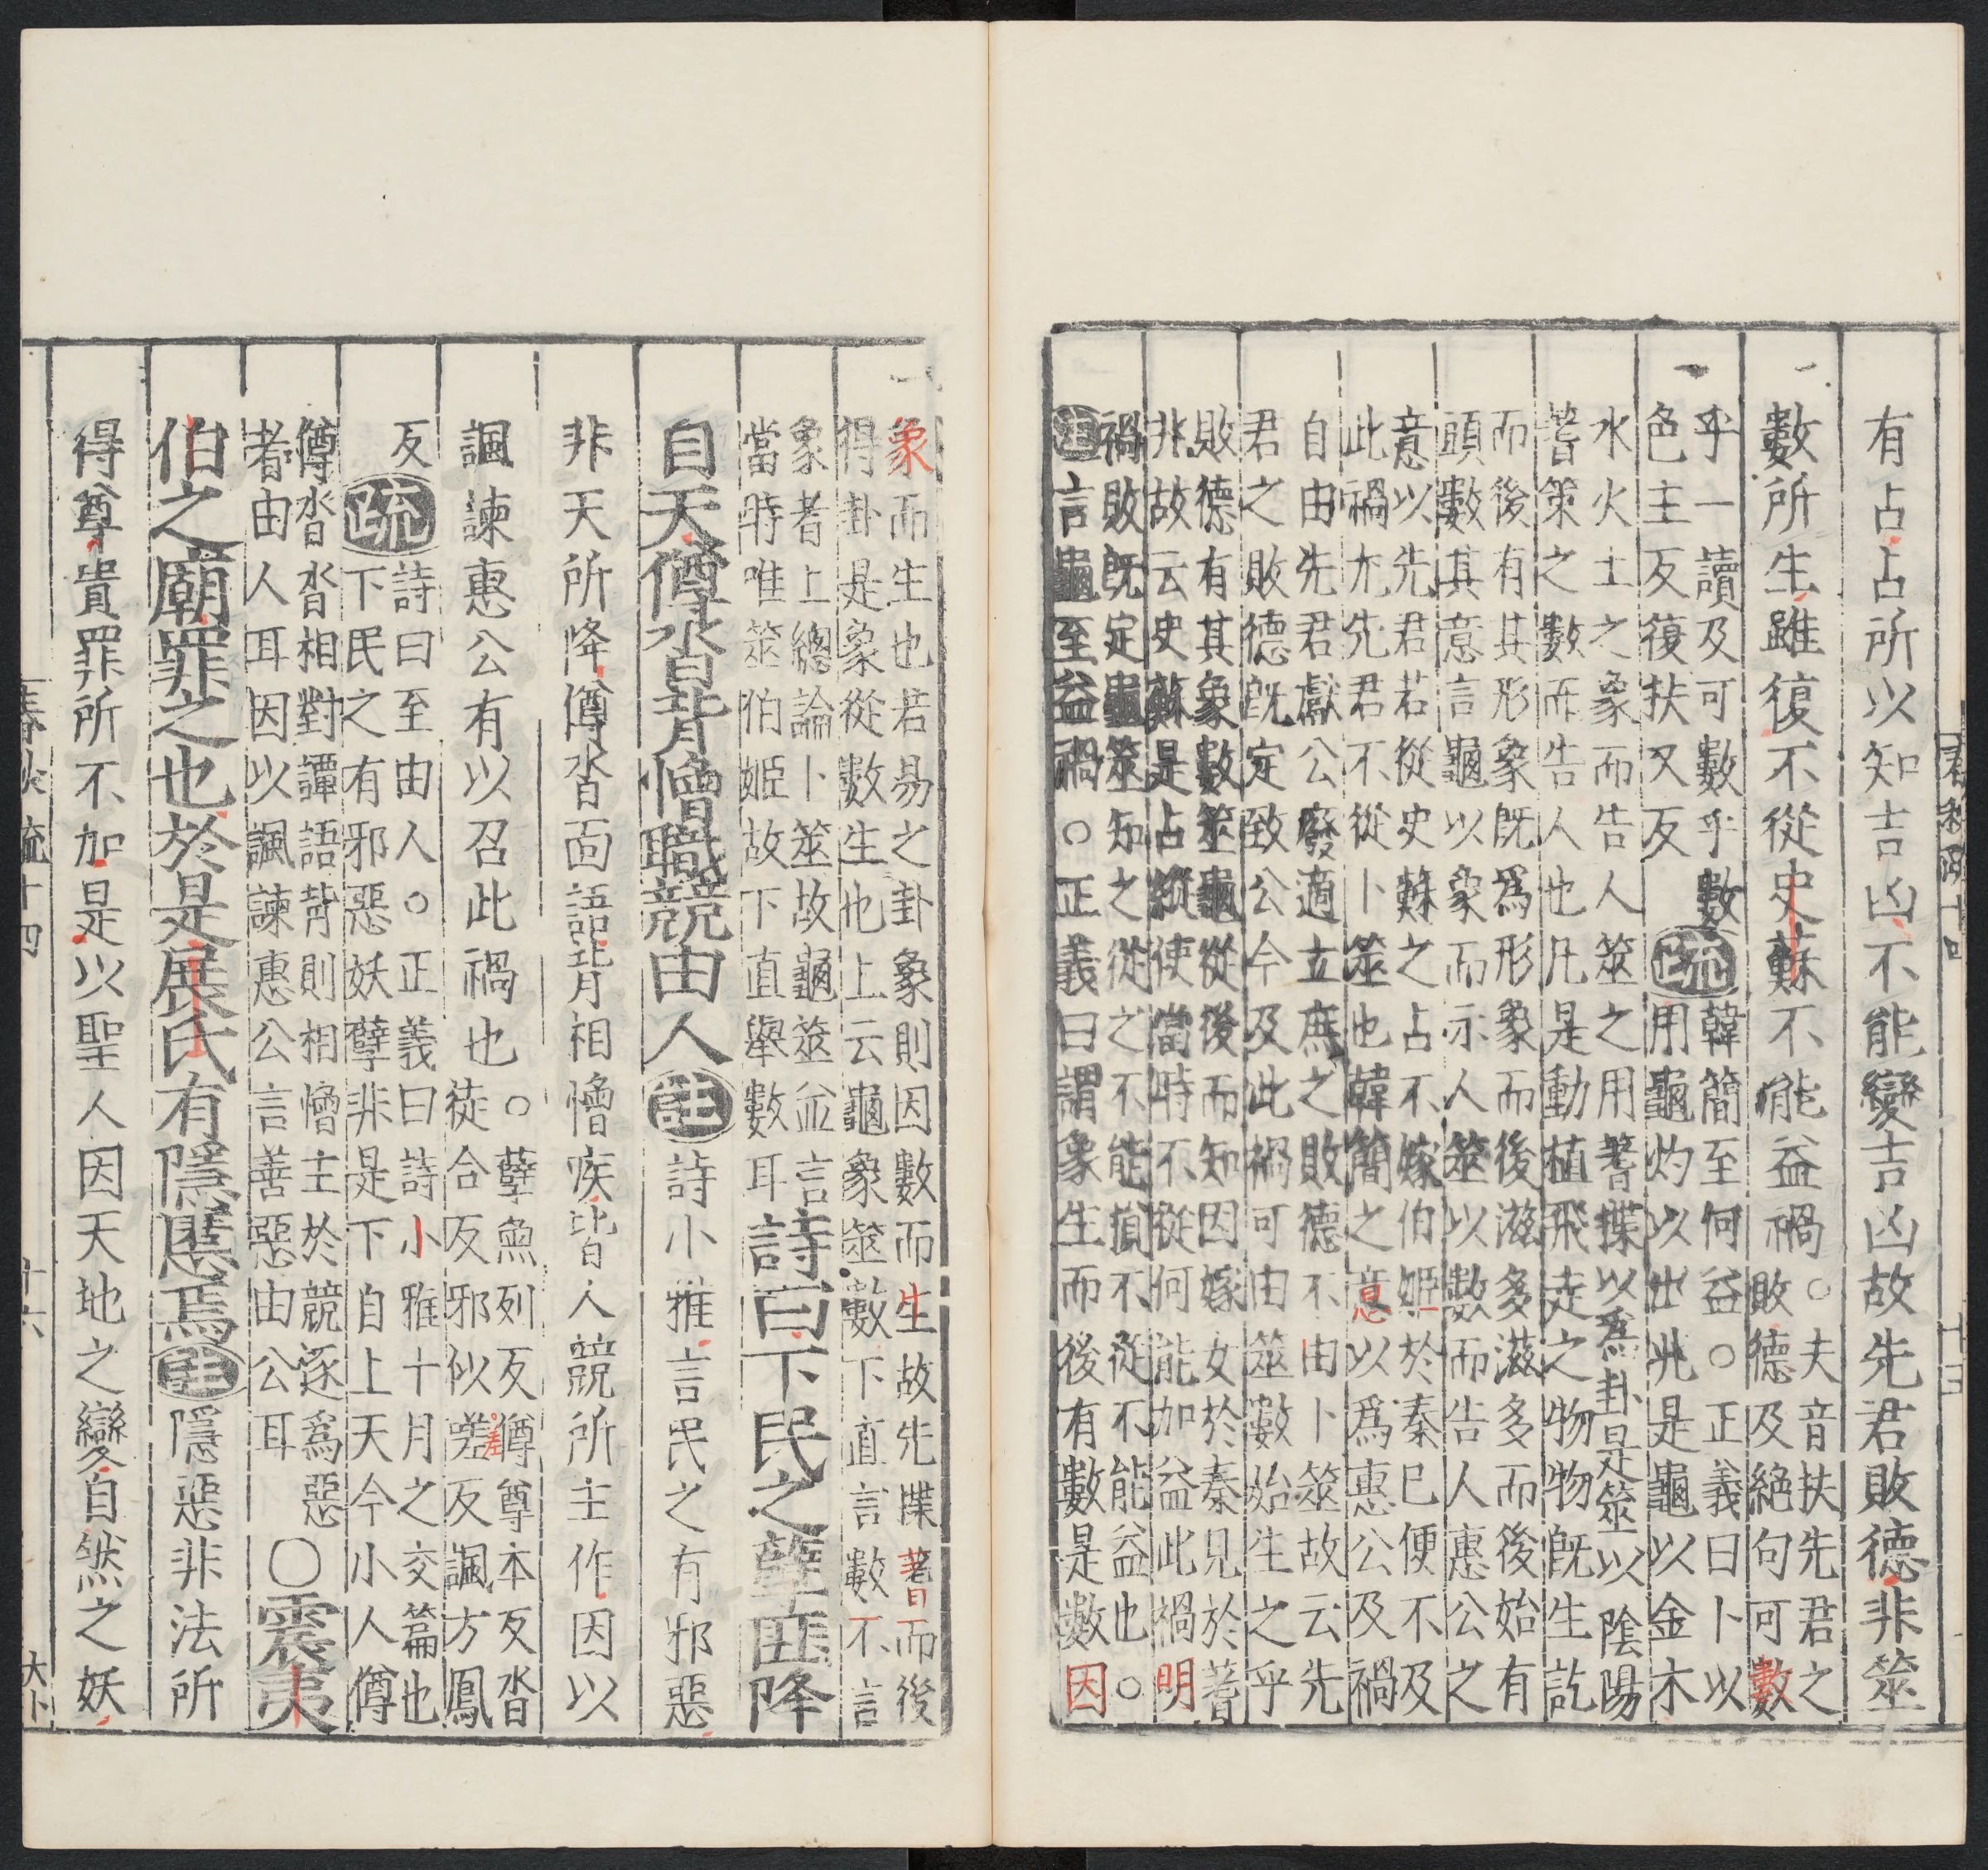 有占占所以知吉凶不能變吉凶故先君敗德非筮
數所生雖復不從史蘇不能益禍○夫音扶先君之
敗德及絕句可數
乎一讀及可數乎數
色主反復扶又反
疏韓簡至何益○正義曰卜以
用龜灼以出兆是龜以金木
水火土之象而告人筮之用蓍揲以爲卦是筮以陰陽
蓍策之數而告人也凡是動植飛走之物物旣生訖
而後有其形象旣爲形象而後滋多滋多而後始有
頭數其意言龜以象而示人筮以數而告人惠公之
意以先君若從史蘇之占不嫁伯姬於秦巳便不及
此禍尢先君不從卜筮也韓簡之意以爲惠公及禍
自由先君獻公廢適立庶之敗德不由卜筮故云先
君之敗德旣定致公今及此禍可由筮數始生之乎
敗德有其象數筮龜從後而知因嫁女於秦見於蓍
兆故云史蘇是占縱使當時不從何能加益此禍明
禍敗旣定龜筮知之從之不能損不從不能益也○
註言龜至益禍○正義曰謂象生而後有數是數因
象而生也若易之卦象則因數而生故先揲蓍而後
得卦是象從數生也上云龜象筮數下直言數不言
象者上總論卜筮故龜筮並言
當時唯筮伯姬故下直舉數耳
詩曰下民之孽匪降
自天僔沓背憎職競由人註詩小雅言民之有邪惡
非天所降僔沓面語背相憎疾皆人競所主作因以
諷諫惠公有以召此禍也○孽魚列反僔尊本反沓
徒合反邪似嗟反諷方鳳
反
疏詩曰至由人○正義曰詩小雅十月之交篇也
下民之有邪惡妖孽非是下自上天今小人僔
僔沓沓相對譚語背則相憎主於競逐爲惡
者由人耳因以諷諫惠公言善惡由公耳
○震夷
伯之廟罪之也於是展氏有隱慝焉註隱惡非法所
得尊貴罪所不加是以聖人因天地之變自然之妖